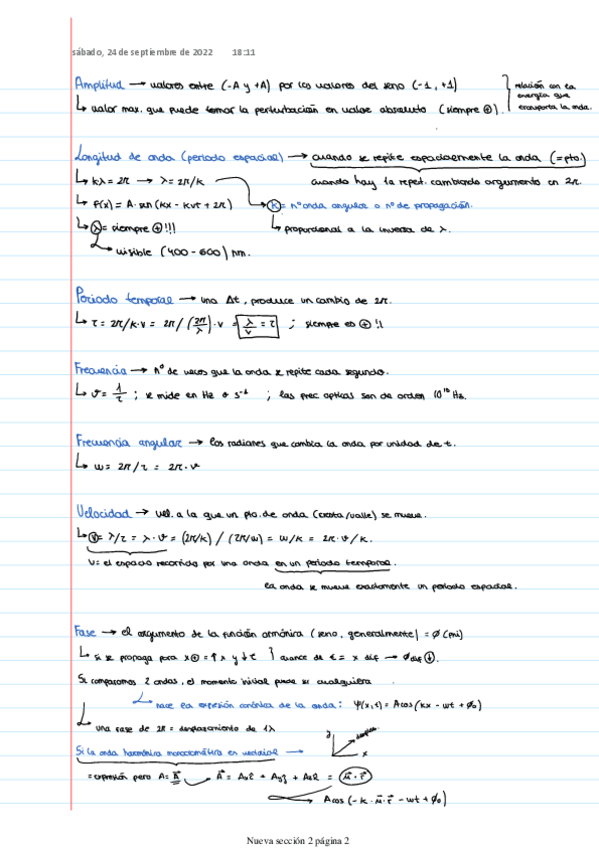 sábado, 24 de septiembre de 2022 18:11
Amplitud → valores entre (-A y +A) por los valores del seno (-1, +1)
relación con la energía que transporta la onda.
↳ valor max. que puede tomar la perturbación en valor absoluto (siempre ⊕).
Longitud de onda (periodo espacial) → cuando se repite espacialmente la onda (= pto.)
↳ kλ = 2π → λ = 2π/k
cuando hay la repet. cambiando argumento en 2π.
↳ f(x) = A·sen(kx - kvt + 2π)
k = nº onda angular o nº de propagación.
↳ λ = siempre ⊕!!!
↳ proporcional a la inversa de λ.
↳ visible (400-600) nm.
Periodo temporal → una Δt, produce un cambio de 2π.
↳ τ = 2π/k·v = 2π/(2π/λ)·v = λ/v = τ ; siempre es ⊕ !!
Frecuencia → nº de veces que la onda se repite cada segundo.
↳ ν = 1/τ ; se mide en Hz o s⁻¹ ; las frec. opticas son de orden 10¹⁵ Hz.
Frecuencia angular → los radianes que cambia la onda por unidad de t.
↳ w = 2π/τ = 2π·ν
Velocidad → vel. a la que un pto. de onda (cresta/valle) se mueve.
↳ v = λ/τ = λ·ν = (2π/k) / (2π/w) = w/k = 2π·ν/k.
v = el espacio recorrido por una onda en un periodo temporal.
la onda se mueve exactamente un periodo espacial.
Fase → el argumento de la función armónica (seno, generalmente) = ϕ (phi)
↳ si se propaga para x⊕ = ↑x y ↓t } avance de t = x dif → ϕ dif ⊕.
Si comparamos 2 ondas, el momento inicial puede ser cualquiera
↳ nace la expresión canónica de la onda: ψ(x,t) = A cos(kx - wt + ϕ₀)
↳ una fase de 2π = desplazamiento de 1λ
Si la onda harmónica monocromática es vectorial →
y
x
= expresión pero A = A⃗
A⃗ =
A cos(-k·u⃗·r⃗ - wt + ϕ₀)
Nueva sección 2 página 2